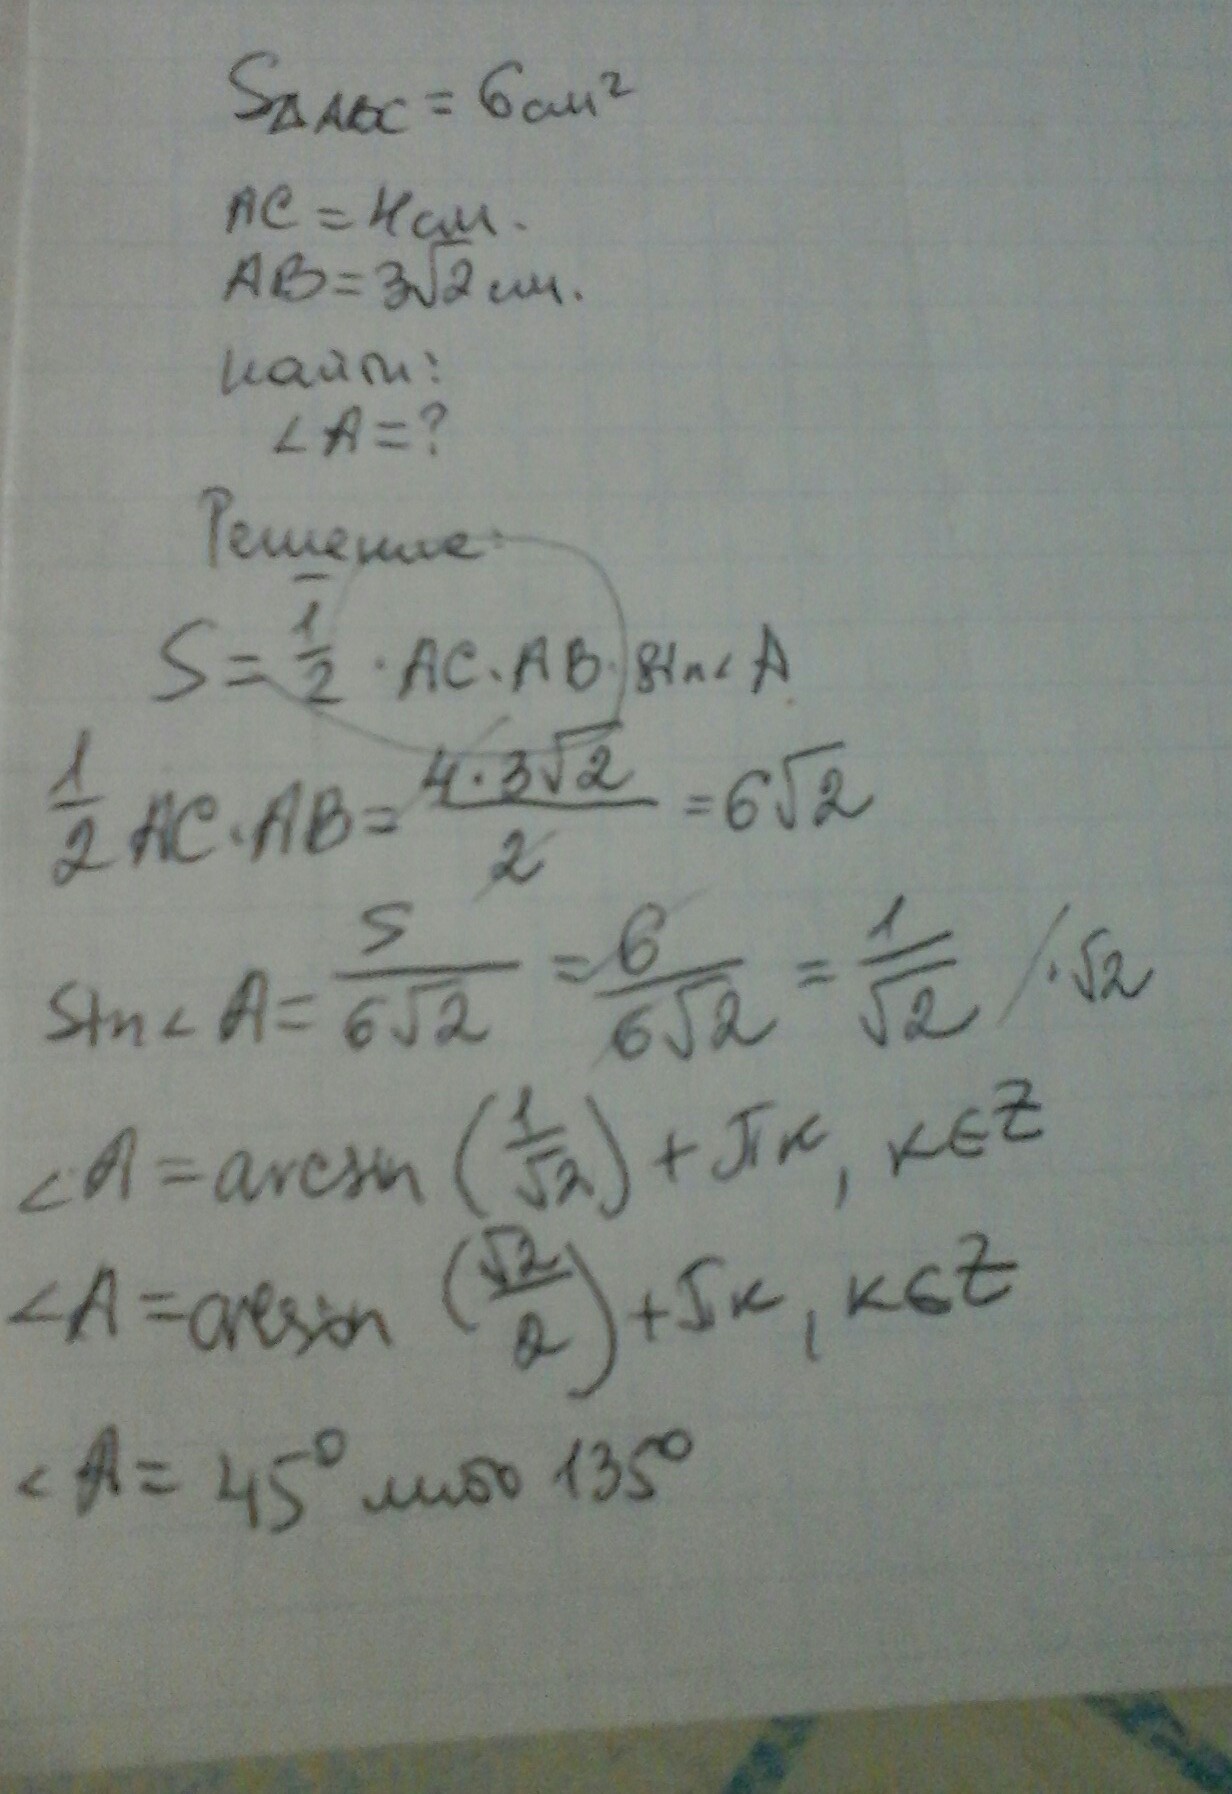 S△ABC = 6 см²
AC = 4 см.
AB = 3√2 см.
Найти:
∠A = ?
Решение:
S = 1/2 · AC · AB · sin∠A
1/2 AC · AB = 4·3√2/2 = 6√2
sin∠A = S/6√2 = 6/6√2 = 1/√2 / ·√2
∠A = arcsin (1/√2) + πk, k∈Z
∠A = arcsin (√2/2) + πk, k∈Z
∠A = 45° либо 135°